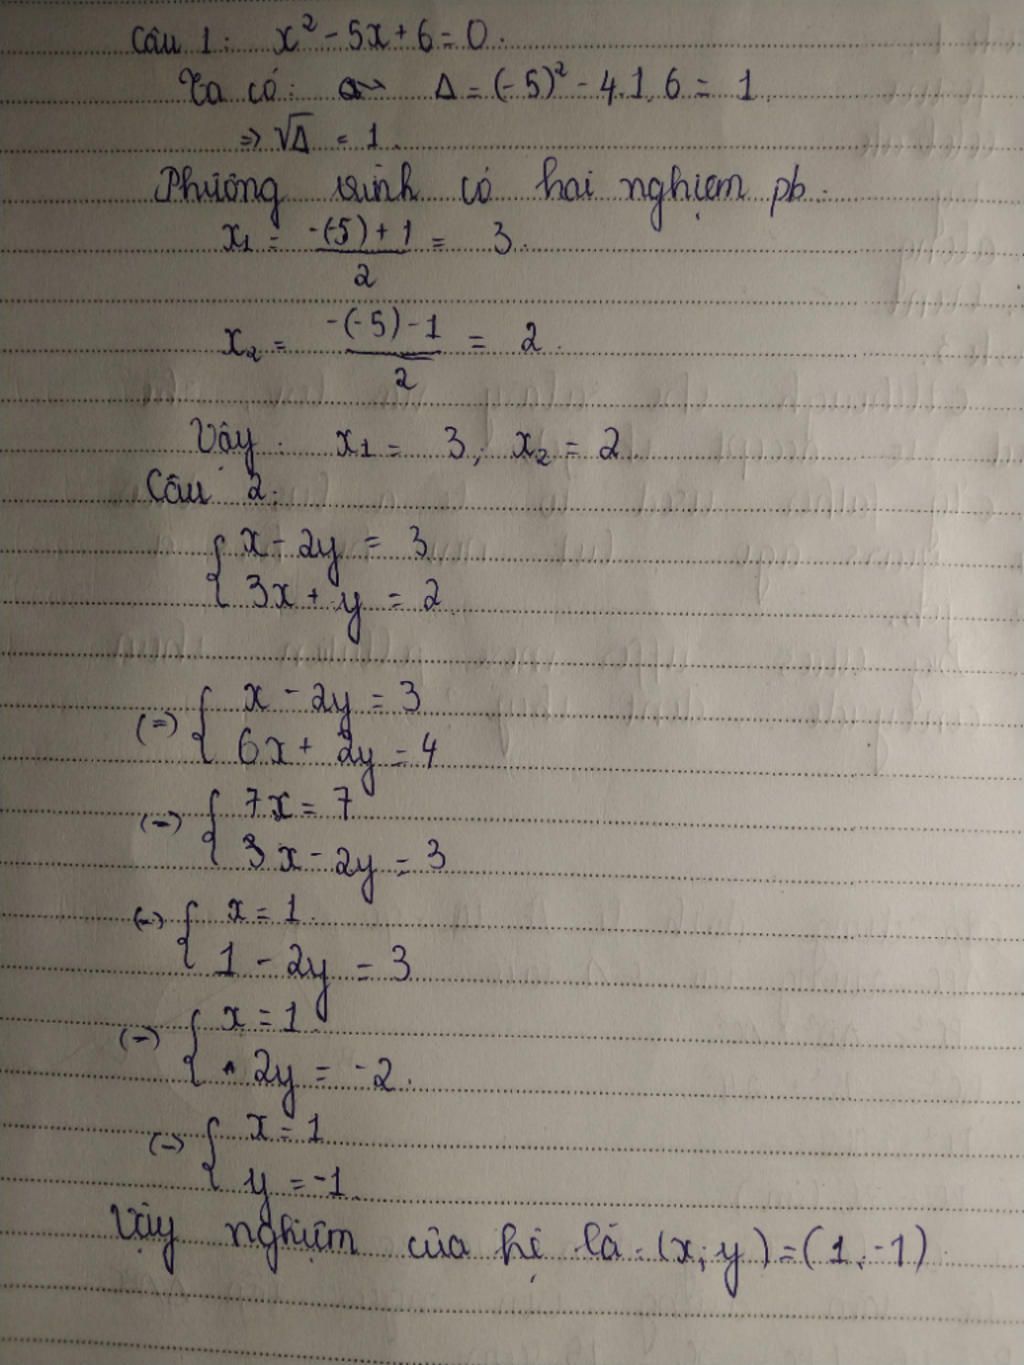 Câu 1: x² - 5x + 6 = 0.
Ta có: Δ = (-5)² - 4.1.6 = 1.
=> √Δ = 1.
Phương trình có hai nghiệm pb:
x₁ = (-(-5) + 1)/2 = 3.
x₂ = (-(-5) - 1)/2 = 2.
Vậy: x₁ = 3; x₂ = 2.
Câu 2:
{ x - 2y = 3
{ 3x + y = 2.
(=) { x - 2y = 3
{ 6x + 2y = 4
(=) { 7x = 7
{ 3x - 2y = 3
(=) { x = 1.
{ 1 - 2y = 3
(=) { x = 1.
{ 2y = -2.
(=) { x = 1
{ y = -1.
Vậy nghiệm của hệ là: (x; y) = (1; -1).